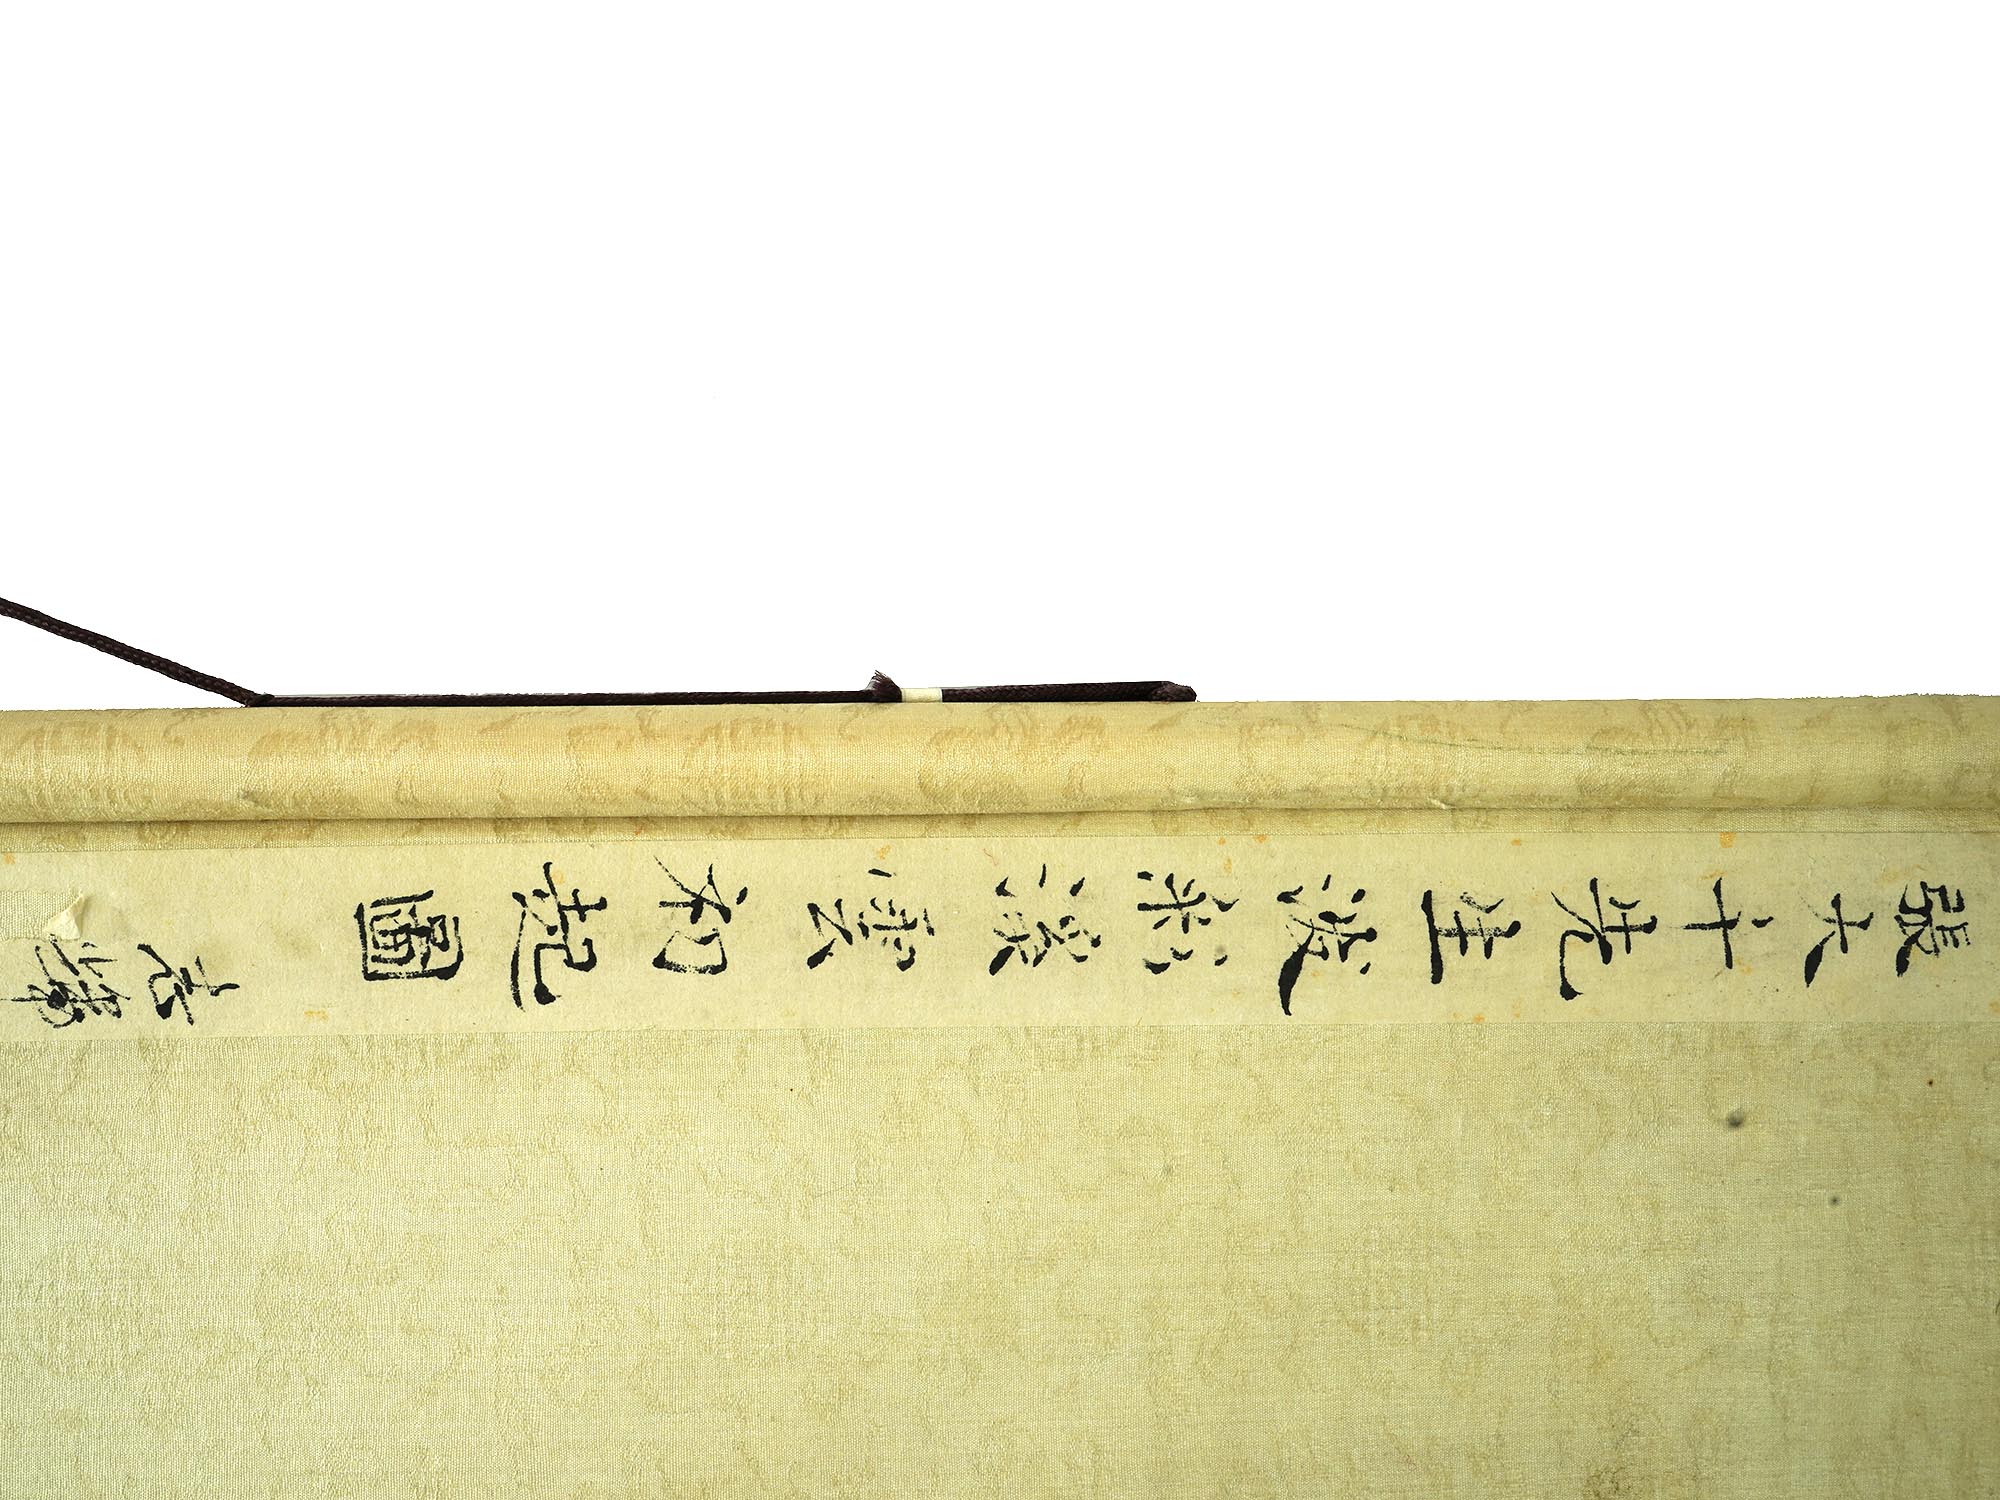 張大千先生潑彩溪雲初起圖